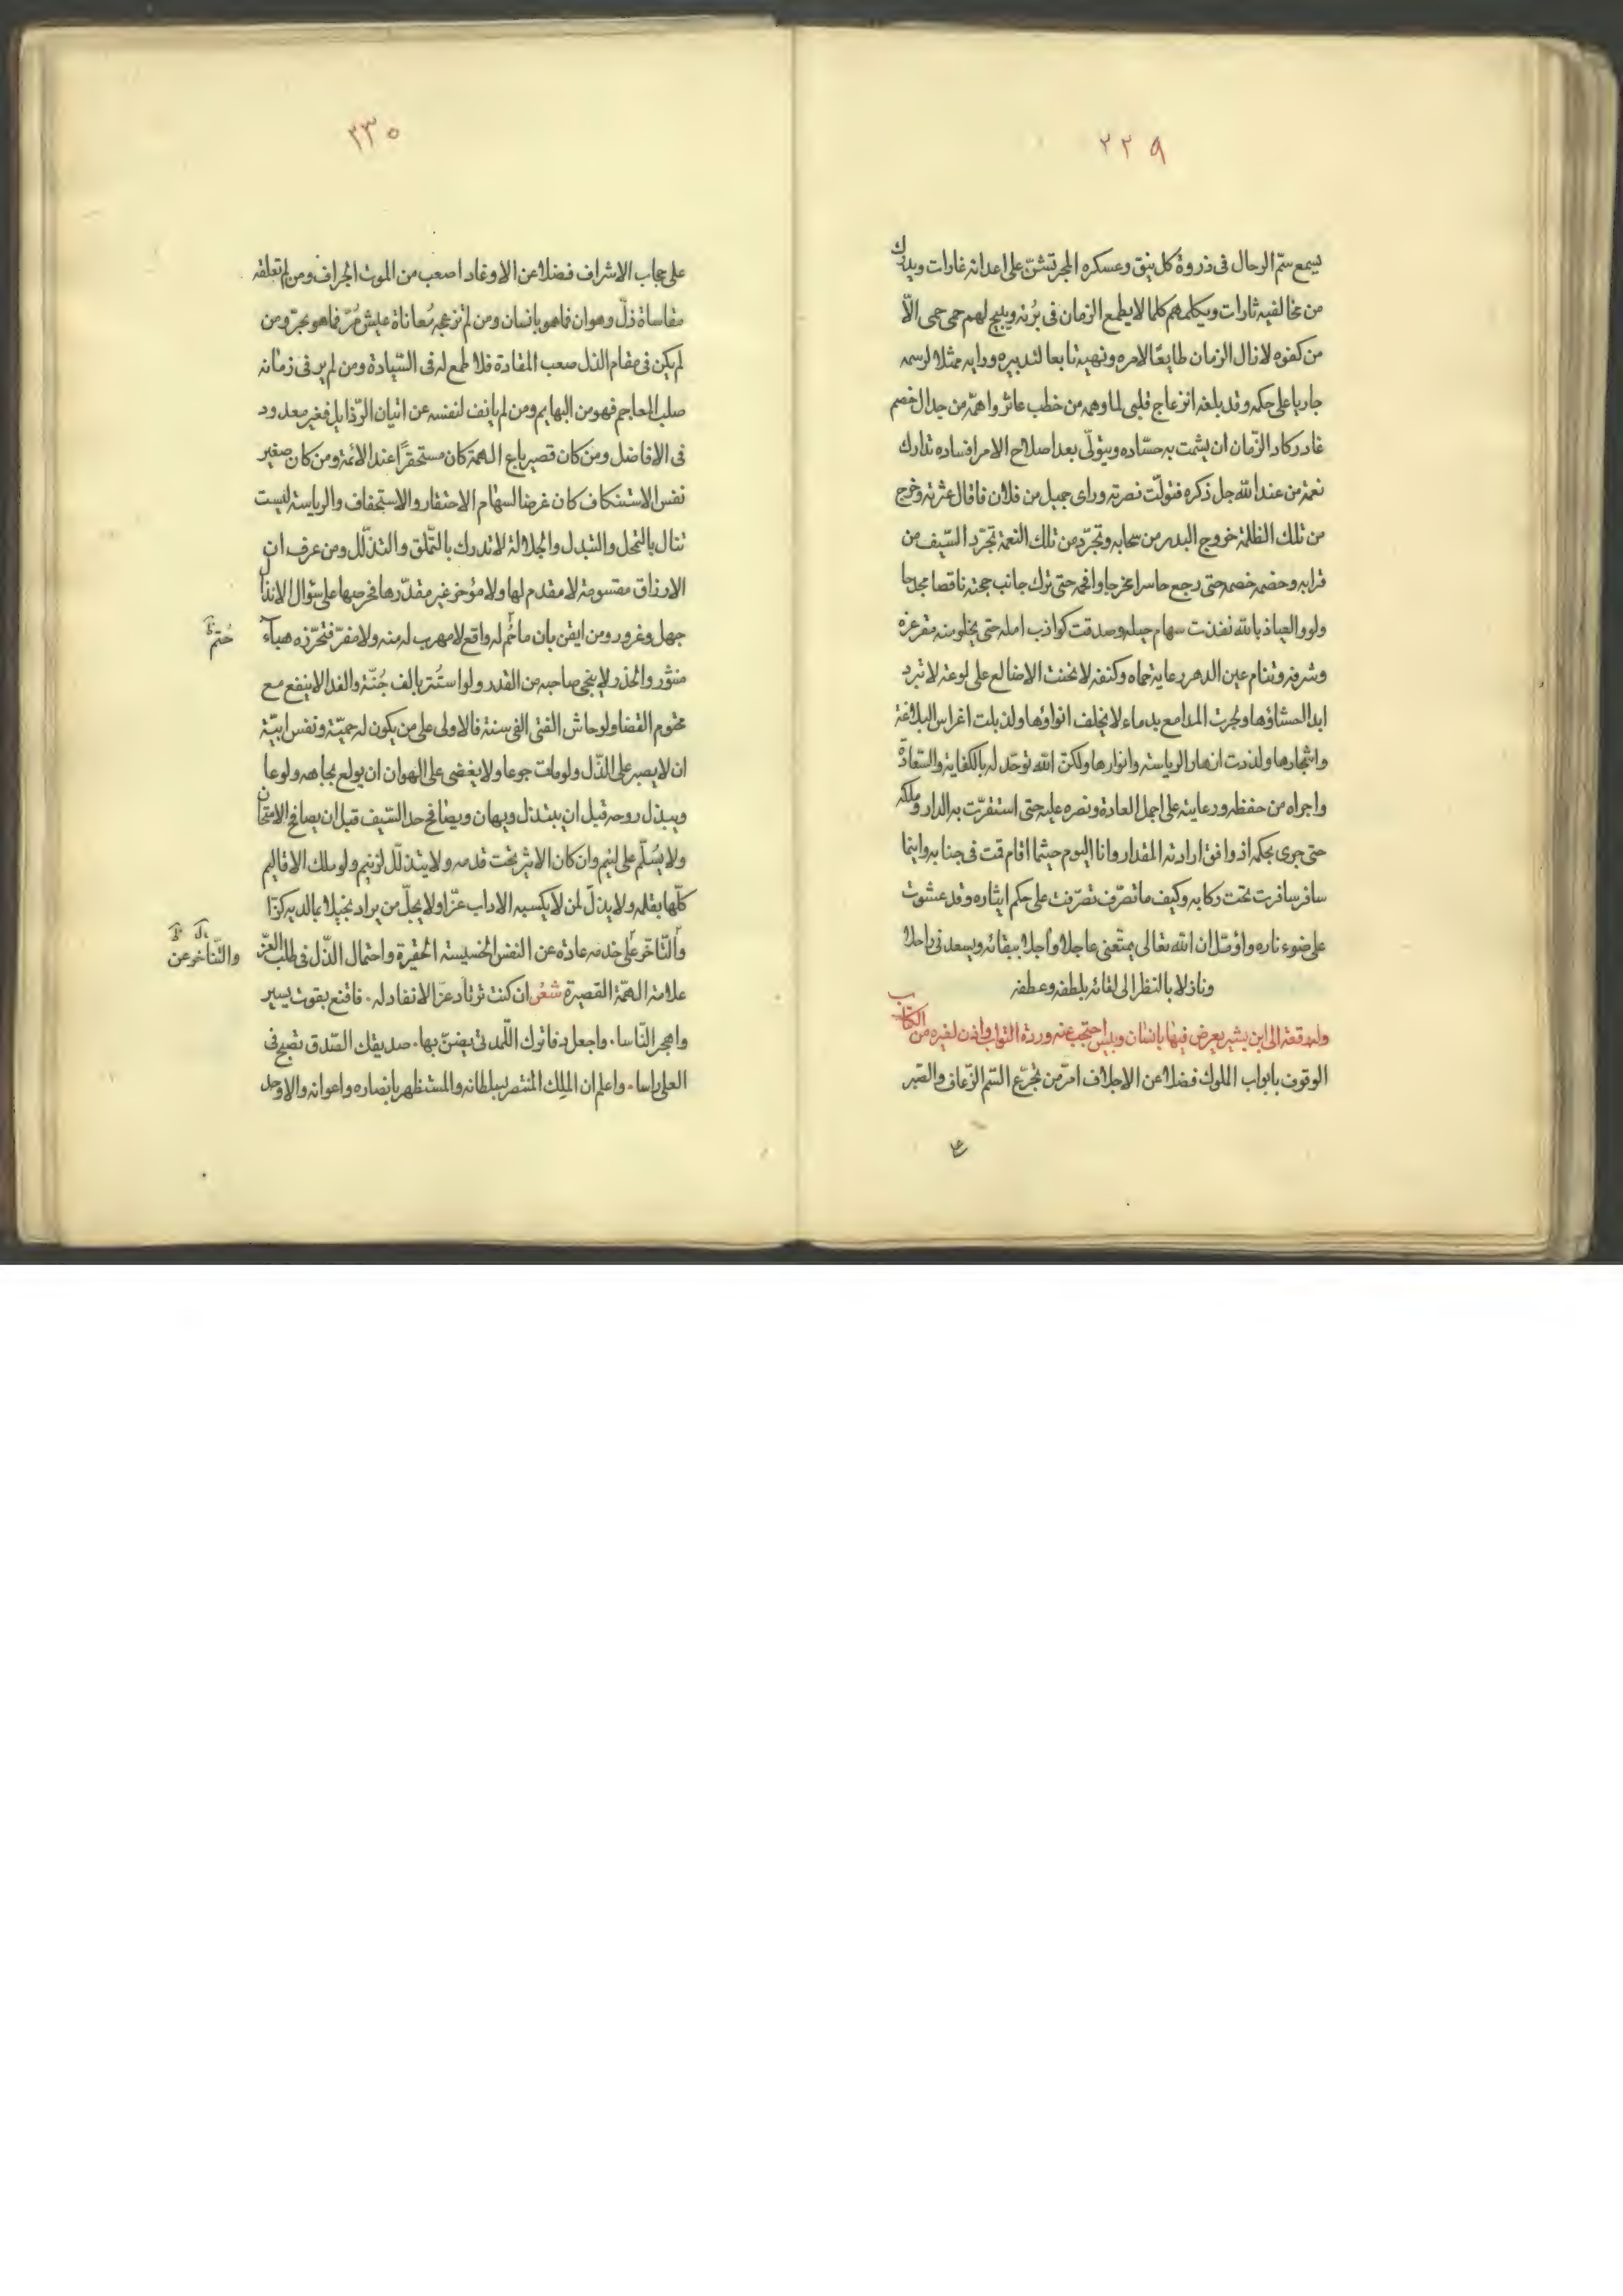 ٢٢٩
يسمع ستم الرحال فى ذروة كل نيق وعسكره المجر تشنّ على اعدائه غارات ويدرك
من مخالفيه ثارات ويكلمهم كلما لا يطمع الزمان فى برئه ويبيح لهم حمى حمى الّا
من كفوه لا زال الزمان طايعًا لامره ونهيه تابعا لتدبيره ورايه ممثلا لرسمه
جاريا على حكمه وقد بلغه انزعاج قلبى لما وهمه من خطب عاثر واهمّه من جدال خصم
غادر كاد الزّمان ان يشمت به حسّاده ويتولّى بعد اصلاح الامر افساده تدارك
نعمة من عند الله جل ذكره فتولّت نصرته وراى جميل من فلان فاقال عثرته وخرج
من تلك الظلمة خروج البدر من سحابه وتجرّد من تلك النعمة تجرّد السّيف من
قرابه وخصمه حتى رجع خاسرا وافحمه حتى ترك جانب حجته ناقصا
ولو والعياذ بالله نفذت سهام حيله وصدقت كواذب امله حتى يخلو منه مقر عزه
وشرفه وتنام عين الدهر رعاية حماه وكنفه لانحنت الاضالع على لوعة لا تبرد
ابدا احشاؤها ولجرت المدامع بدماء لا يخلف انواؤها ولذبلت اغراس البلاغة
واشجارها ولذوت ازهار الرياسة وانوارها ولكنّ الله توحّد له بالكفاية والسّعادة
واجراه من حفظه ورعايته على اجمل العادة ونصره عليه حتى استقرّت به الدار وملكه
حتى جرى بحكمه اذ وافق ارادته المقدار وانا اليوم حيثما اقام قمت فى جنابه واينما
سافر سافرت تحت ركابه وكيف ما تصرّف تصرّفت على حكم ايثاره وقد عشوت
على ضوء ناره واؤمّل ان الله تعالى يمتّعنى عاجلا وآجلا ببقائه ويسعدنى راحلا
ونازلا بالنظر الى لقائه بلطفه وعطفه
وله رقعة الى ابن بشير يعرض فيها بانسان احتجب عنه وردّه البواب واذن لغيره من الكتاب
الوقوف بابواب الملوك فضلا عن الاجلاف امرّ من تجرّع السّم الزّعاف والصّبر
٢٣٠
على حجاب الاشراف فضلا عن الاوغاد اصعب من الموت الجراف ومن لم تعلقه
مقاساة ذلّ وهوان فما هو بانسان ومن لم تزعجه مُعاناة عيش مُرّ فما هو بحرّ ومن
لم يكن فى مقام الذل صعب المقادة فلا طمع له فى السّيادة ومن لم ير فى زمانه
صلب المعاجم فهو من البهايم ومن لم يانف لنفسه عن اتيان الرّذايل فغير معدود
فى الافاضل ومن كان قصير باع الهمة كان مستحقرًا عند الائمة ومن كان صغير
نفس الاستنكاف كان غرضا لسهام الاحتقار والاستخفاف والرياسة ليست
تنال بالتحل والتبدل والجلالة لا تدرك بالتّملّق والتذلّل ومن عرف ان
الارزاق مقسومة لا مقدم لها ولا مؤخر غير مقدّرها فحرصها على سؤال الانذال
جهل وغرور ومن ايقن بان ما حُمّ له واقع لا مهرب له منه ولا مفرّ فتحرّزه هباء
حُتم
منثور والحذر لا ينجى صاحبه من القدر ولو استتر بالف جُنّة والفدا لا ينفع مع
محتوم القضا ولو عاش الفتى الفى سنة فالاولى على من يكون له حميّة ونفس ابيّة
ان لا يصبر على الذّل ولو مات جوعا ولا يغضى على الهوان ان يولع بجاهه ولوعا
ويبذل روحه قبل ان يبتذل ويهان ويصافح حد السّيف قبل ان يصافح الامتحان
ولا يُسلّم على لئيم وان كان الاثر تحت قدمه ولا يتذلّل لزنيم ولو ملك الاقاليم
كلّها بقلمه ولا يذلّ لمن لا يكسبه الاداب عزّا ولا يجلّ من يراد بخيلا بمالديه كزّا
والتّاخّر على خدمه عادة عن النفس الخسيسة الحقيرة واحتمال الذّل فى طلب العزّ
والتّاخر عن
علامة الهمّة القصيرة شعر ان كنت ترتاد عزّا لا نفاد له . فاقنع بقوت يسير
واهجر النّاسا . واجعل اللّه تضنّ بها . صديقك الصّدق تصبح فى
العلى راسا . واعلم ان الملك المنتصر بسلطانه والمستظهر بانصاره واعوانه والاوحد